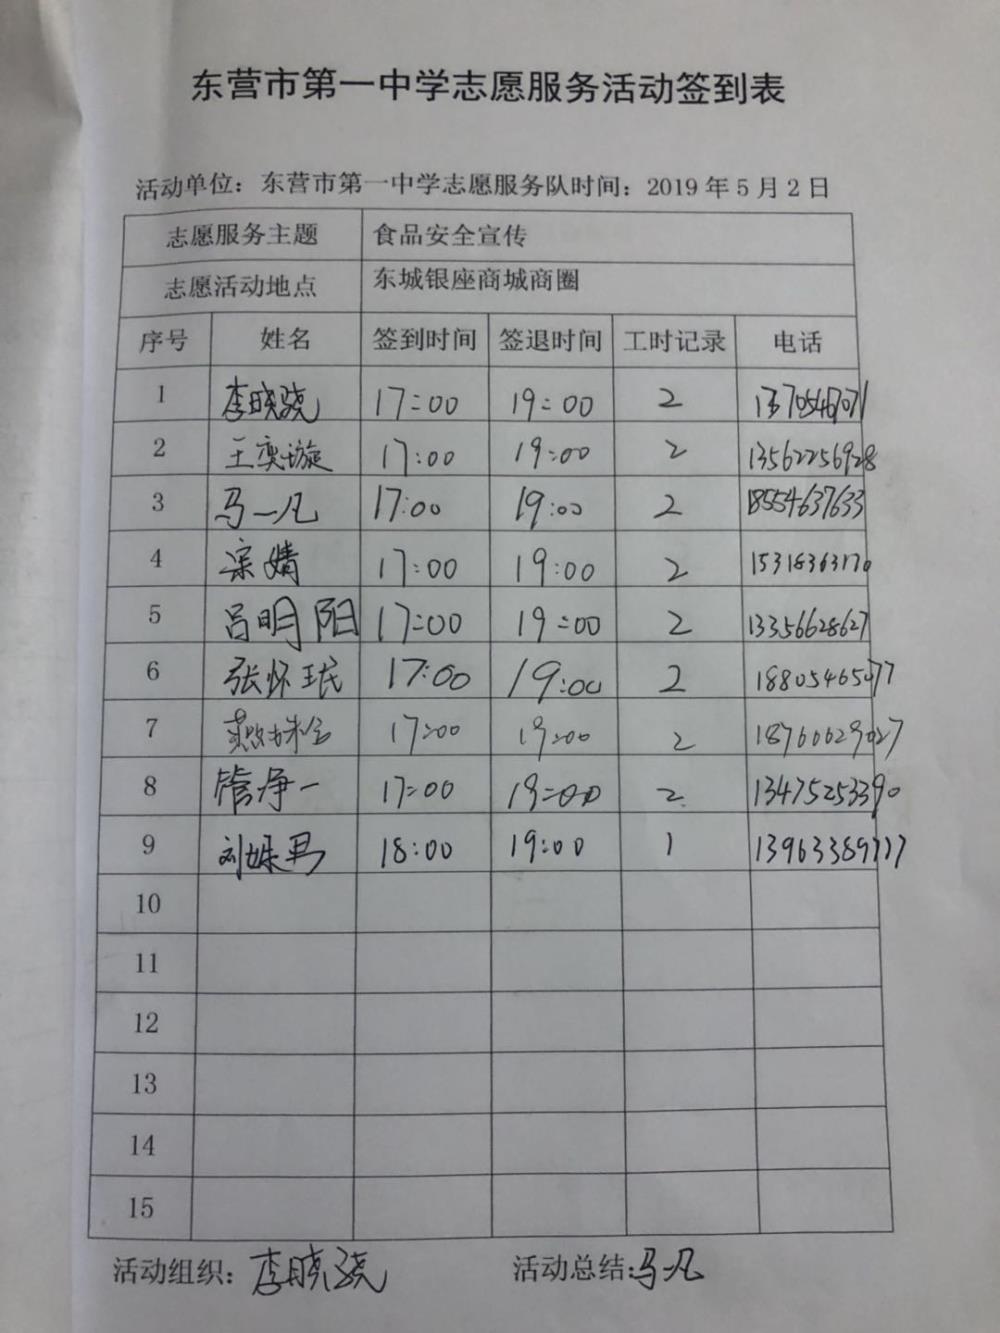 东营市第一中学志愿服务活动签到表
活动单位：东营市第一中学志愿服务队时间：2019 年 5 月 2 日
志愿服务主题 食品安全宣传
志愿活动地点 东城银座商城商圈
序号 姓名 签到时间 签退时间 工时记录 电话
1 李晓骁 17:00 19:00 2
2 王奕璇 17:00 19:00 2 13562256928
3 马一凡 17:00 19:00 2 18554637633
4 宗婧 17:00 19:00 2 15318363170
5 吕明阳 17:00 19:00 2 13356628627
6 张怀珉 17:00 19:00 2 18805465077
7 17:00 19:00 2 18760629027
8 管净一 17:00 19:00 2 13475253390
9 刘姝男 18:00 19:00 1 13963389777
10
11
12
13
14
15
活动组织：李晓骁 活动总结:马一凡